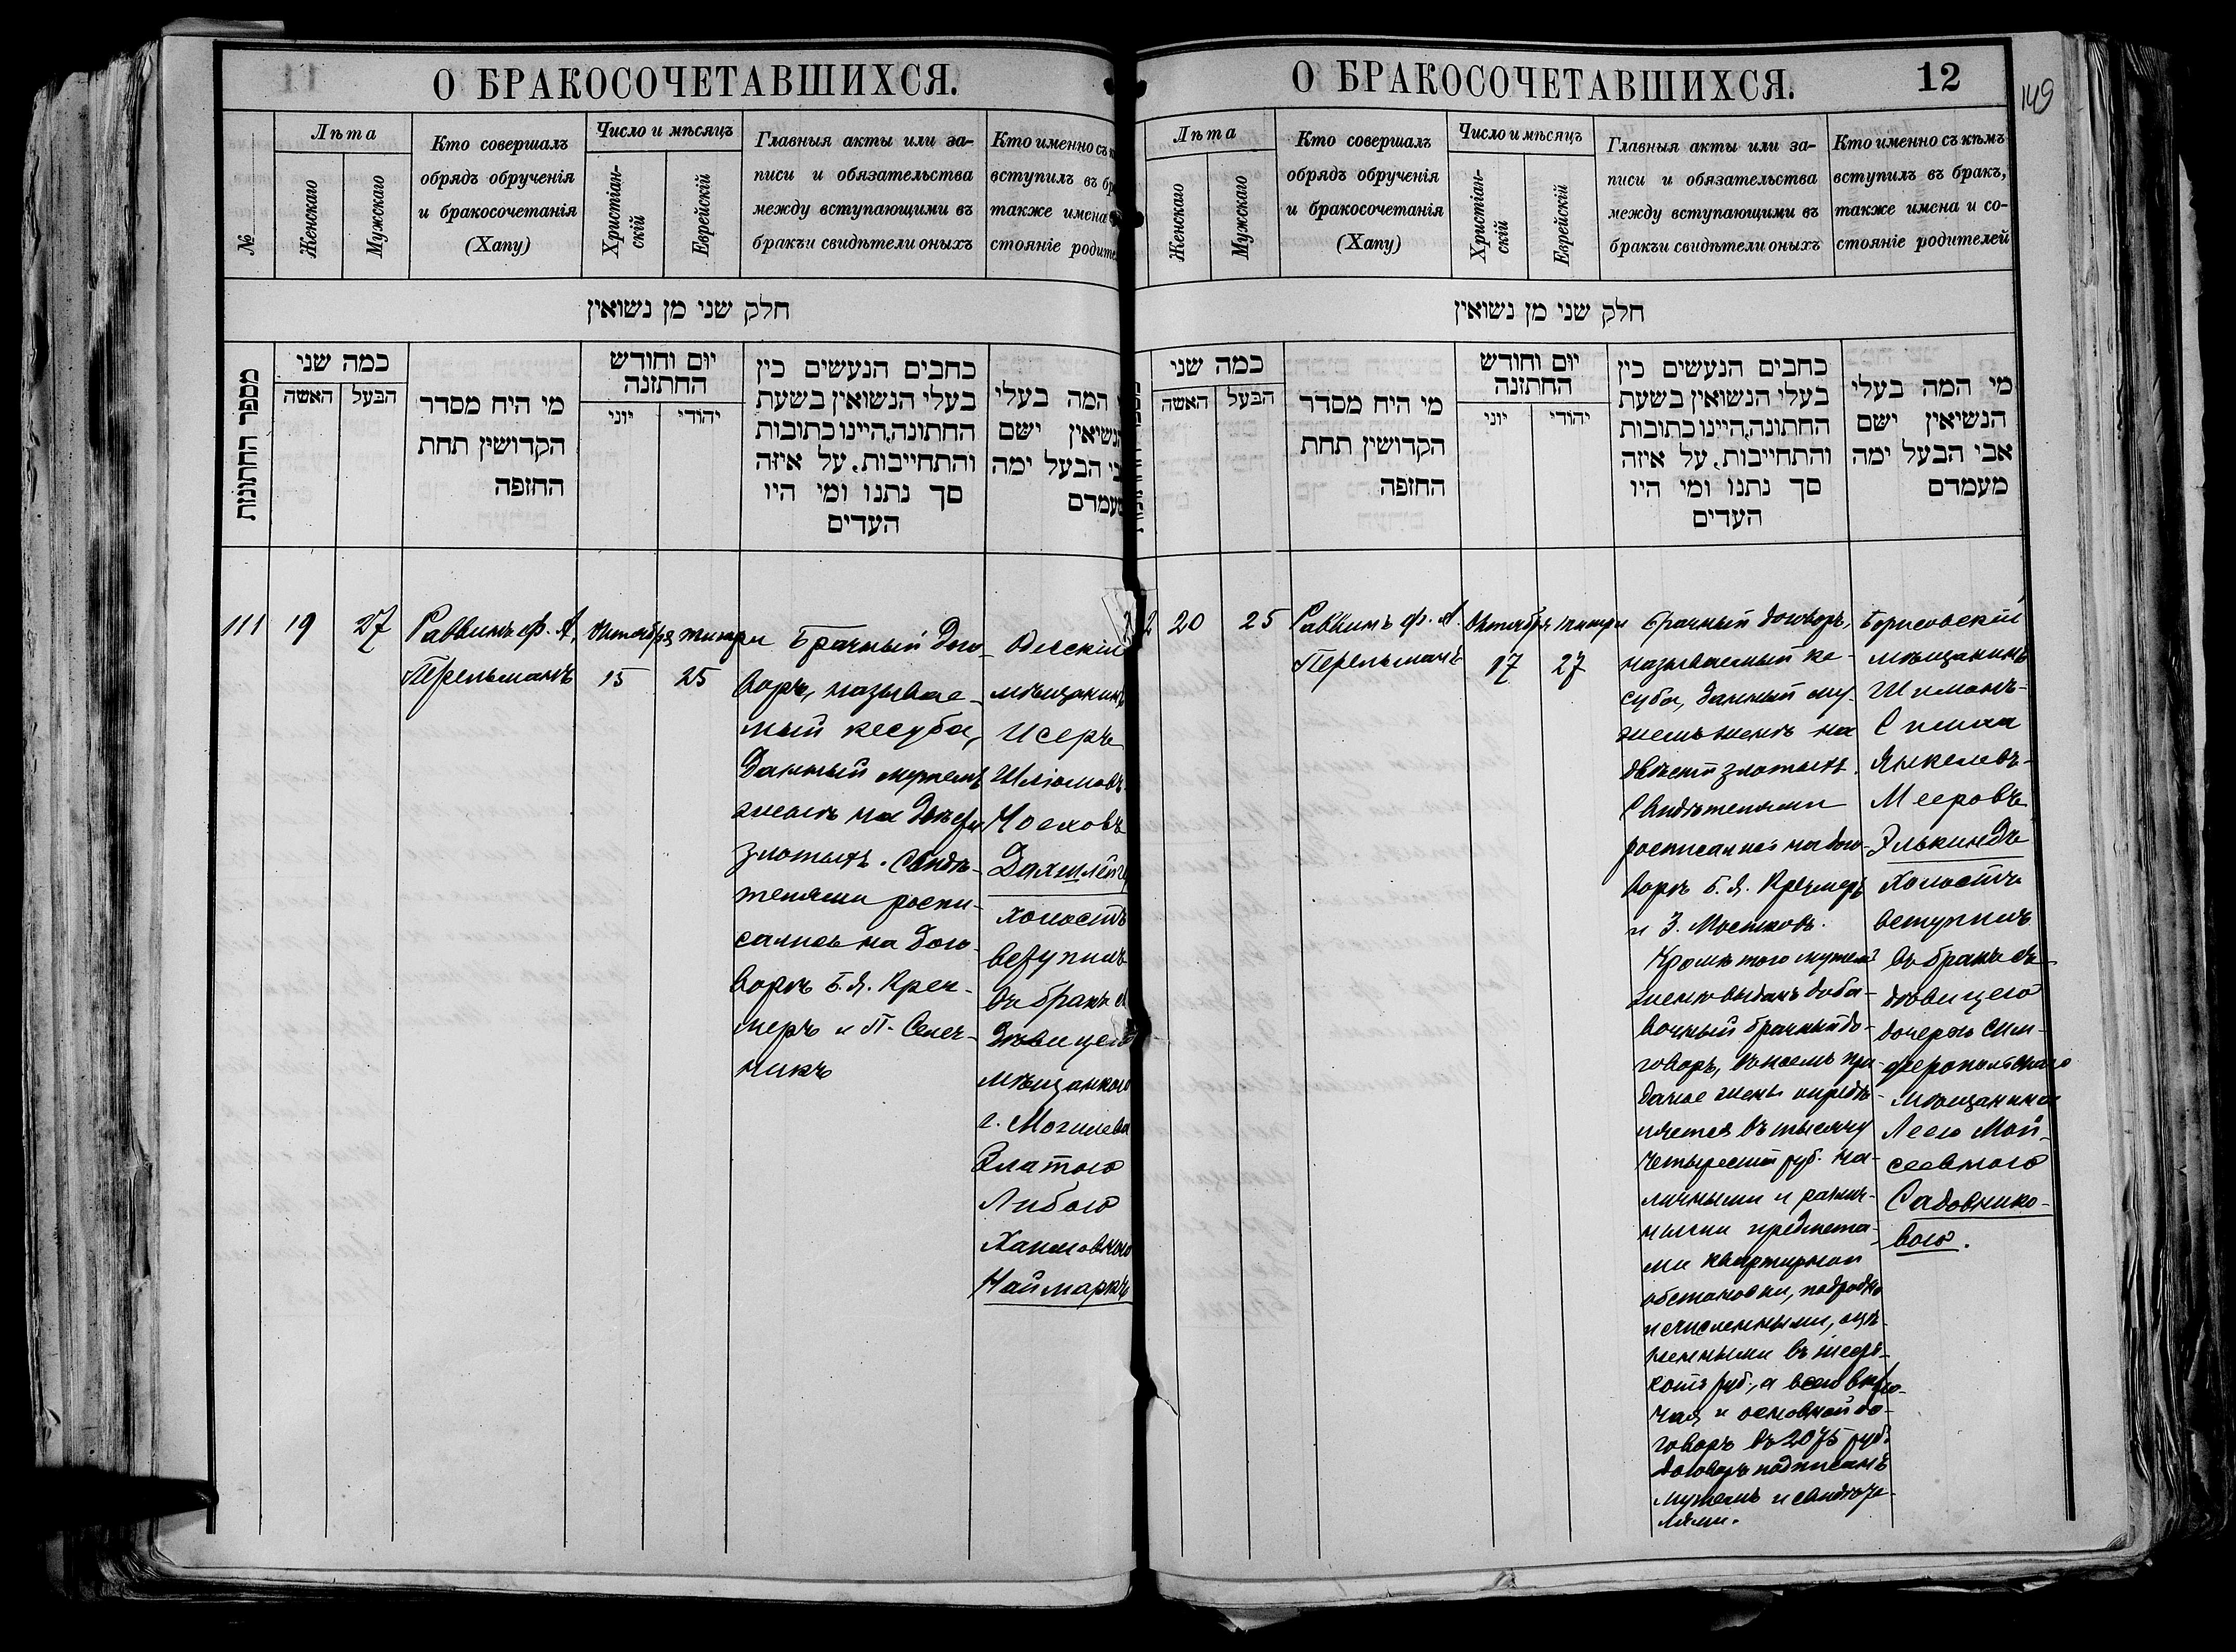 О БРАКОСОЧЕТАВШИХСЯ.
№
Лѣта
Женскаго
Мужскаго
Кто совершалъ
обрядъ обрученія
и бракосочетанія
(Хапу)
Число и мѣсяцъ
Христіан-
скій
Еврейскій
Главныя акты или за-
писи и обязательства
между вступающими въ
бракъи свидѣтели оныхъ
Кто именно съ
вступилъ въ
также имена
стояніе
חלק שני מן נשואין
מספר החתונות
כמה שני
האשה
הבעל
מי היח מסדר
הקדושין תחת
החזפה
יום וחודש
החתזנה
יוני
יהודי
כחבים הנעשים כין
בעלי הנשואין בשעת
החתונה, היינו כתובות
והתחייבות, על איזה
סך נתנו ומי היו
העדים
המה בעלי
ישם
הבעל ימה
111
19
27
Раввинъ Ф. А.
Перельманъ
Октября
15
тишри
25
Брачный дого-
воръ, называе-
мый кесуба,
данный мужемъ
женѣ на двѣсти
злотыхъ. Свидѣ-
телями роспи-
сались на дого-
ворѣ Б. Я. Креч-
меръ и П. Селеч-
никъ
мѣщанинъ
Исеръ
Шліомовъ-
холостъ
вступилъ
въ бракъ
дѣвицею
мѣщанкою
г. Могилева
Златою
Либою
Хаимовною
Наймаркъ
О БРАКОСОЧЕТАВШИХСЯ.
12
149
Лѣта
Женскаго
Мужскаго
Кто совершалъ
обрядъ обрученія
и бракосочетанія
(Хапу)
Число и мѣсяцъ
Христіан-
скій
Еврейскій
Главныя акты или за-
писи и обязательства
между вступающими въ
бракъи свидѣтели оныхъ
Кто именно съ кѣмъ
вступилъ въ бракъ,
также имена и со-
стояніе родителей
חלק שני מן נשואין
כמה שני
האשה
הבעל
מי היח מסדר
הקדושין תחת
החזפה
יום וחודש
החתזנה
יוני
יהודי
כחבים הנעשים כין
בעלי הנשואין בשעת
החתונה, היינו כתובות
והתחייבות, על איזה
סך נתנו ומי היו
העדים
מי המה בעלי
הנשיאין ישם
אבי הבעל ימה
מעמדם
2
20
25
Раввинъ Ф. А.
Перельманъ
Октября
17
тишри
27
Брачный договоръ,
называемый ке-
суба, данный му-
жемъ женѣ на
двѣсти злотыхъ.
Свидѣтелями
росписались на дого-
ворѣ Б. Я. Кречмеръ
и З. Мостковъ.
Кромѣ того мужемъ
женѣ выданъ доба-
вочный брачный до-
говоръ, въ коемъ при-
даное жены опредѣ-
ляется въ тысячу
четыреста руб. на-
личными и различ-
ными предмета-
ми квартирной
обстановки, подробно
исчисленными, оцѣ-
ненными въ
руб., а всего вклю-
чая и основной до-
говоръ въ 2075 руб.
Договоръ подписанъ
мужемъ и свидѣте-
лями.
Борисовскій
мѣщанинъ
Шимонъ-
Симха
Янкелевъ-
Мееровъ
Элькиндъ
холостъ
вступилъ
въ бракъ съ
дѣвицею
дочерью Сим-
феропольскаго
мѣщанина
Леею Мой-
сеевною
Садовнико-
вою.